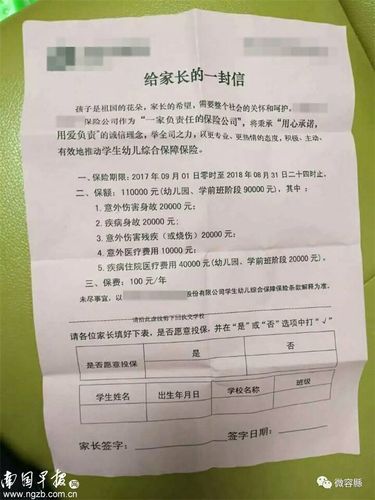 给家长的一封信
孩子是祖国的花朵，家长的希望，需要整个社会的关怀和呵护。
保险公司作为“一家负责任的保险公司”，将秉承“用心承诺，
用爱负责”的诚信理念，举全司之力，以更专业、更热情的态度，积极、主动、
有效地推动学生幼儿综合保障保险。
一、保险期限：2017年09月01日零时至2018年08月31日二十四时止。
二、保额：110000元(幼儿园、学前班阶段90000元)，其中：
1.意外伤害身故20000元；
2.疾病身故20000元；
3.意外伤害残疾（或烧伤）20000元；
4.意外医疗费用10000元；
5.疾病住院医疗费用40000元(幼儿园、学前班阶段20000元)。
三、保费：100元/年
未尽事宜，以 股份有限公司学生幼儿综合保障保险条款解释为准。
请沿此虚线剪下回执交学校
请各位家长填好下表，是否愿意投保，并在“是”或“否”选项中打“√”
是否愿意投保 是 否
学生姓名 出生年月日 学校名称 班级
家长签字： 签字日期：
南国早报网
www.ngzb.com.cn
微容縣